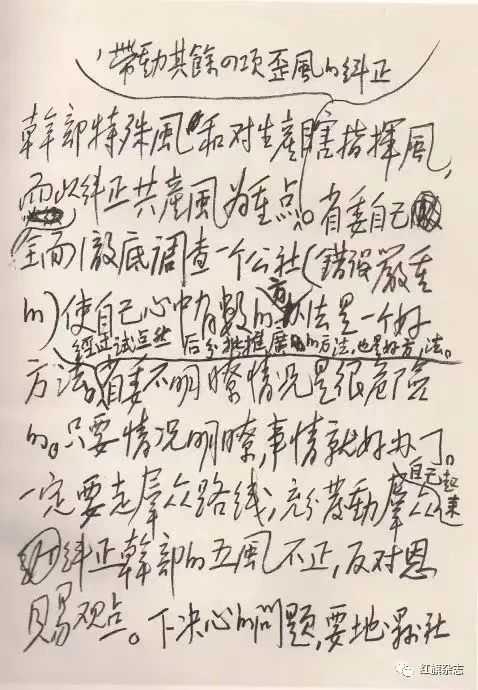 ,带動其餘四项歪風的糾正
幹部特殊風和对生産瞎指揮風,
而以糾正共産風为重点。省委自己
全面徹底調查一个公社(錯误嚴重
的)使自己心中有数的方法是一个好
经过试点然后分批推廣的方法,也是好方法。
方法。省委不明瞭情况是很危险
的。只要情况明瞭,事情就好办了。
一定要走羣众路线,充分發動羣众
自己起来
糾正幹部的五風不正,反对恩
賜观点。下决心的問題,要地、縣、社
红旗杂志